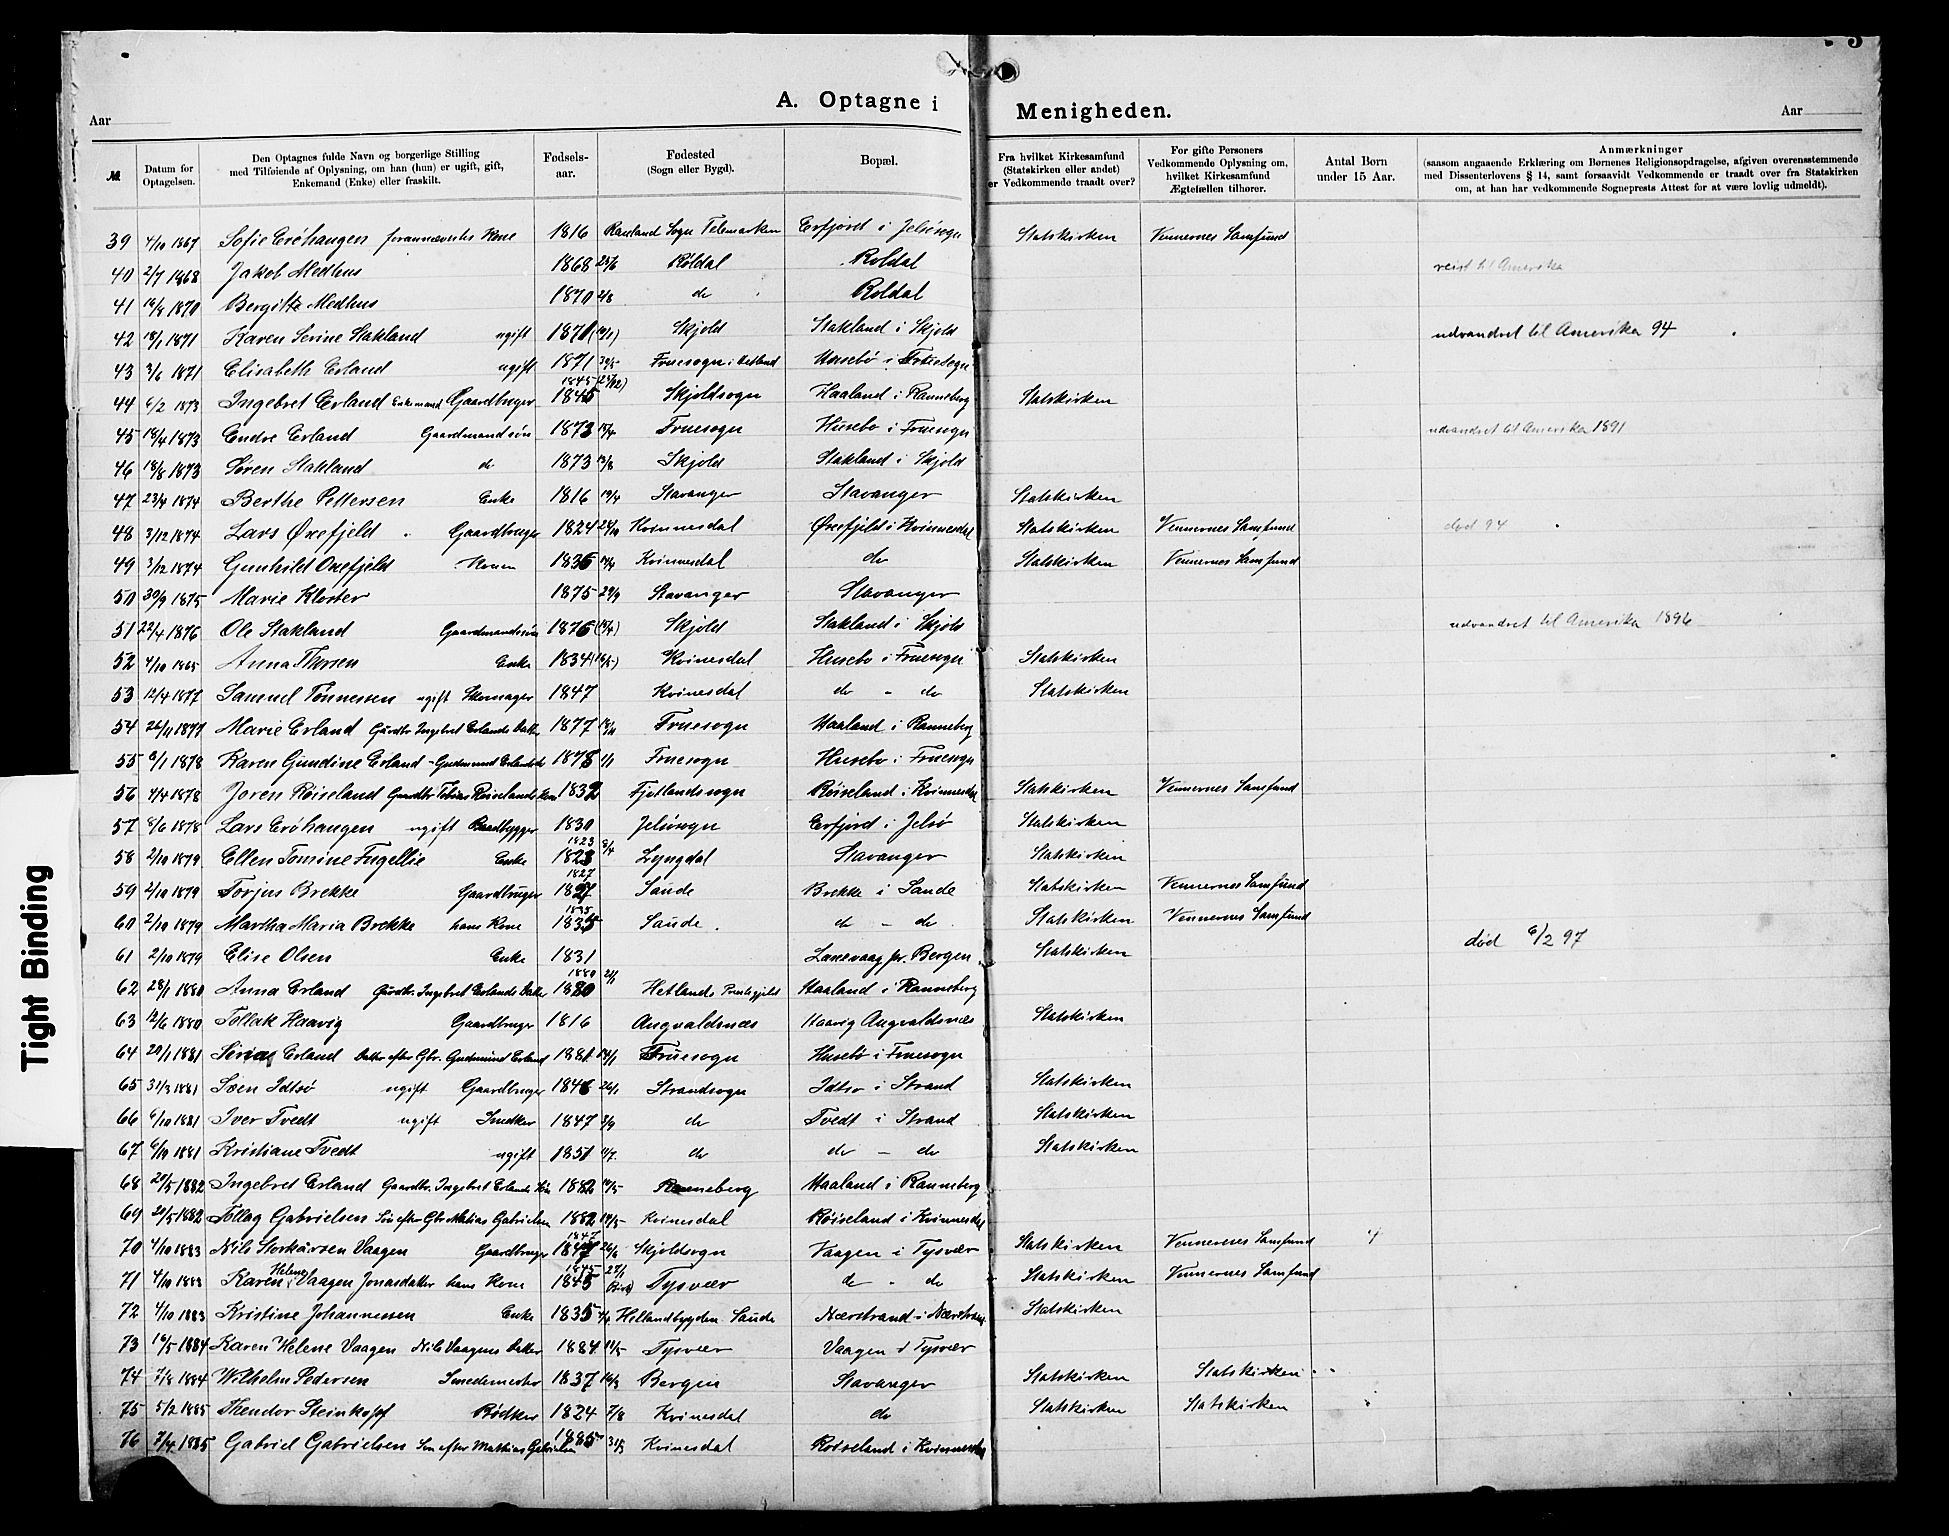 A. Optagne i Menigheden.
Aar Aar
№. Datum for Optagelsen. Den Optagnes fulde Navn og borgerlige Stilling med Tilføiende af Oplysning, om han (hun) er ugift, gift, Enkemand (Enke) eller fraskilt. Fødsels-aar. Fødested (Sogn eller Bygd). Bopæl. Fra hvilket Kirkesamfund (Statskirken eller andet) er Vedkommende traadt over? For gifte Personers Vedkommende Oplysning om, hvilket Kirkesamfund Ægtefællen tilhorer. Antal Børn under 15 Aar. Anmærkninger (saasom angaaende Erklæring om Børnenes Religionsopdragelse, afgiven overensstemmende med Dissenterlovens § 14, samt forsaavidt Vedkommende er traadt over fra Statskirken om, at han har vedkommende Sogneprests Attest for at være lovlig udmeldt).
39 4/10 1867 Sofie Eröhaugen forannævntes Kone 1816 Rauland Sogn Telemarken Erfjord i Jelsösogn Statskirken Vennernes Samfund
40 2/7 1868 Jakob Medhus 1868 Røldal Roldal reist til Amerika
41 1870 Bergitte Medhus 1870 do Roldal
42 18/1 1871 Karen Serine Stakland ugift Skjold Stakland i Skjold udvandret til Amerika 94
43 3/6 1871 Elisabeth Erland ugift 1871 Fruesogn i Hetland Husebö i Fruesogn
44 6/2 1873 Ingebret Erland Enkemand Gaardbruger 1845 Skjoldsogn Haaland i Ranneberg Statskirken
45 18/4 1873 Endre Erland Gaardmandsön 1873 Fruesogn Husebo i Fruesogn udvandret til Amerika 1891
46 18/8 1873 Sören Stakland do 1873 Skjold Stakland i Skjold
47 23/4 1874 Berthe Pettersen Enke 1816 19/4 Stavanger Stavanger Statskirken
48 3/12 1874 Lars Øxefjeld Gaardbruger 1824 24/10 Kvinnesdal Øxefjeld i Kvinnesdal Statskirken Vennernes Samfund død 94
49 3/12 1874 Gunhild Oxefjeld Konen 1836 Kvinnesdal do Statskirken Vennernes Samfund
50 30/9 1875 Marie Kloster 1875 29/9 Stavanger Stavanger
51 22/4 1876 Ole Stakland Gaardmandssön 1876 Skjold Stakland i Skjold udvandret til Amerika 1896
52 4/10 1865 Anna Thorsen Enke 1834 Kvinesdal Husebo i Fruesogn Statskirken
53 12/4 1877 Samuel Tönnessen ugift Skomager 1847 Kvinesdal do " do Statskirken
54 26/11 1877 Marie Erland Gurdbr Ingebret Erlands Datter 1877 Fruesogn Haaland i Ranneberg
55 6/1 1878 Karen Gundine Erland 1878 1/1 Fruesogn Husebo i Fruesogn
56 4/4 1878 Joren Röiseland Gaardbr Tobias Röiselands Kone 1832 Fjotlandsogn Röiseland i Kvinnesdal Statskirken Vennernes Samfund
57 8/6 1878 Lars Eröhaugen ugift 1830 Jelsösogn Erfjord i Jelsö Statskirken
58 2/10 1879 Ellen Tomine Fugellie Enke 1823 1823 8/4 Lyngdal Stavanger Statskirken
59 2/10 1879 Torjus Brekke Gaardbruger 1827 1827 Saude Brekke i Sande Statskirken Vennernes Samfund
60 2/10 1879 Martha Maria Brekke hans Kone 1835 1835 Saude do - do Statskirken Vennernes Samfund
61 2/10 1879 Elise Olsen Enke 1831 Laxevaag pr. Bergen Statskirken død 6/2 97
62 28/1 1880 Anna Erland Gurdbr. Ingebret Erlands Datter 1880 1880 Hetlands Prestegjeld Haaland i Ranneberg
63 12/6 1880 Tollak Haavig Gaardbruger 1816 Augvaldsnæs Haavig Augvaldsnæs Statskirken
64 20/1 1881 Erland Datter efter Gbr. Gudmund Erland 1881 Fruesogn Husebö i Fruesogn
65 31/3 1881 Sven Idtsö ugift Gaardbruger 1846 26/1 Strandsogn Idtso i Strand Statskirken
66 6/10 1881 Iver Tvedt ugift Snedker 1847 3/9 do Tvedt i Strand Statskirken
67 6/10 1881 Kristiane Tvedt ugift 1851 do do - do Statskirken
68 29/5 1882 Ingebret Erland Gaardbr. Ingebret Erlands Sön 1882 Ranneberg Haaland i Ranneberg
69 20/5 1882 Tollag Gabrielsen Sön efter Gbr Matias Gabrielsen 1882 Kvinesdal Röiseland i Kvinnesdal
70 4/10 1883 Nils Storkarsen Vaagen Gaardbruger 1847 1847 26/6 Skjoldsogn Vaagen i Tysvær Statskirken Vennernes Samfund 4
71 4/10 1883 Karen Helene Vaagen Jonasdatter hans Kone 1845 1845 Tysvær do " do Statskirken Vennernes Samfund
72 4/10 1883 Kristine Johannessen Enke 1835 Hellandbygden Saude Nærstrand i Nærstrand Statskirken
73 16/5 1884 Karen Helene Vaagen Nils Vaagens Datter 1884 Tysvær Vaagen i Tysvær
74 7/8 1884 Wilhelm Pedersen Smedemester 1837 Bergen Stavanger Statskirken Statskirken
75 5/2 1885 Theodor Steinkopf Bödker 1824 7/8 Kvinesdal do Statskirken Statskirken
76 7/4 1885 Gabriel Gabrielsen Sön efter Mathias Gabrielsen 1885 31/3 Kvinesdal Roiseland i Kvinnesdal
Tight Binding